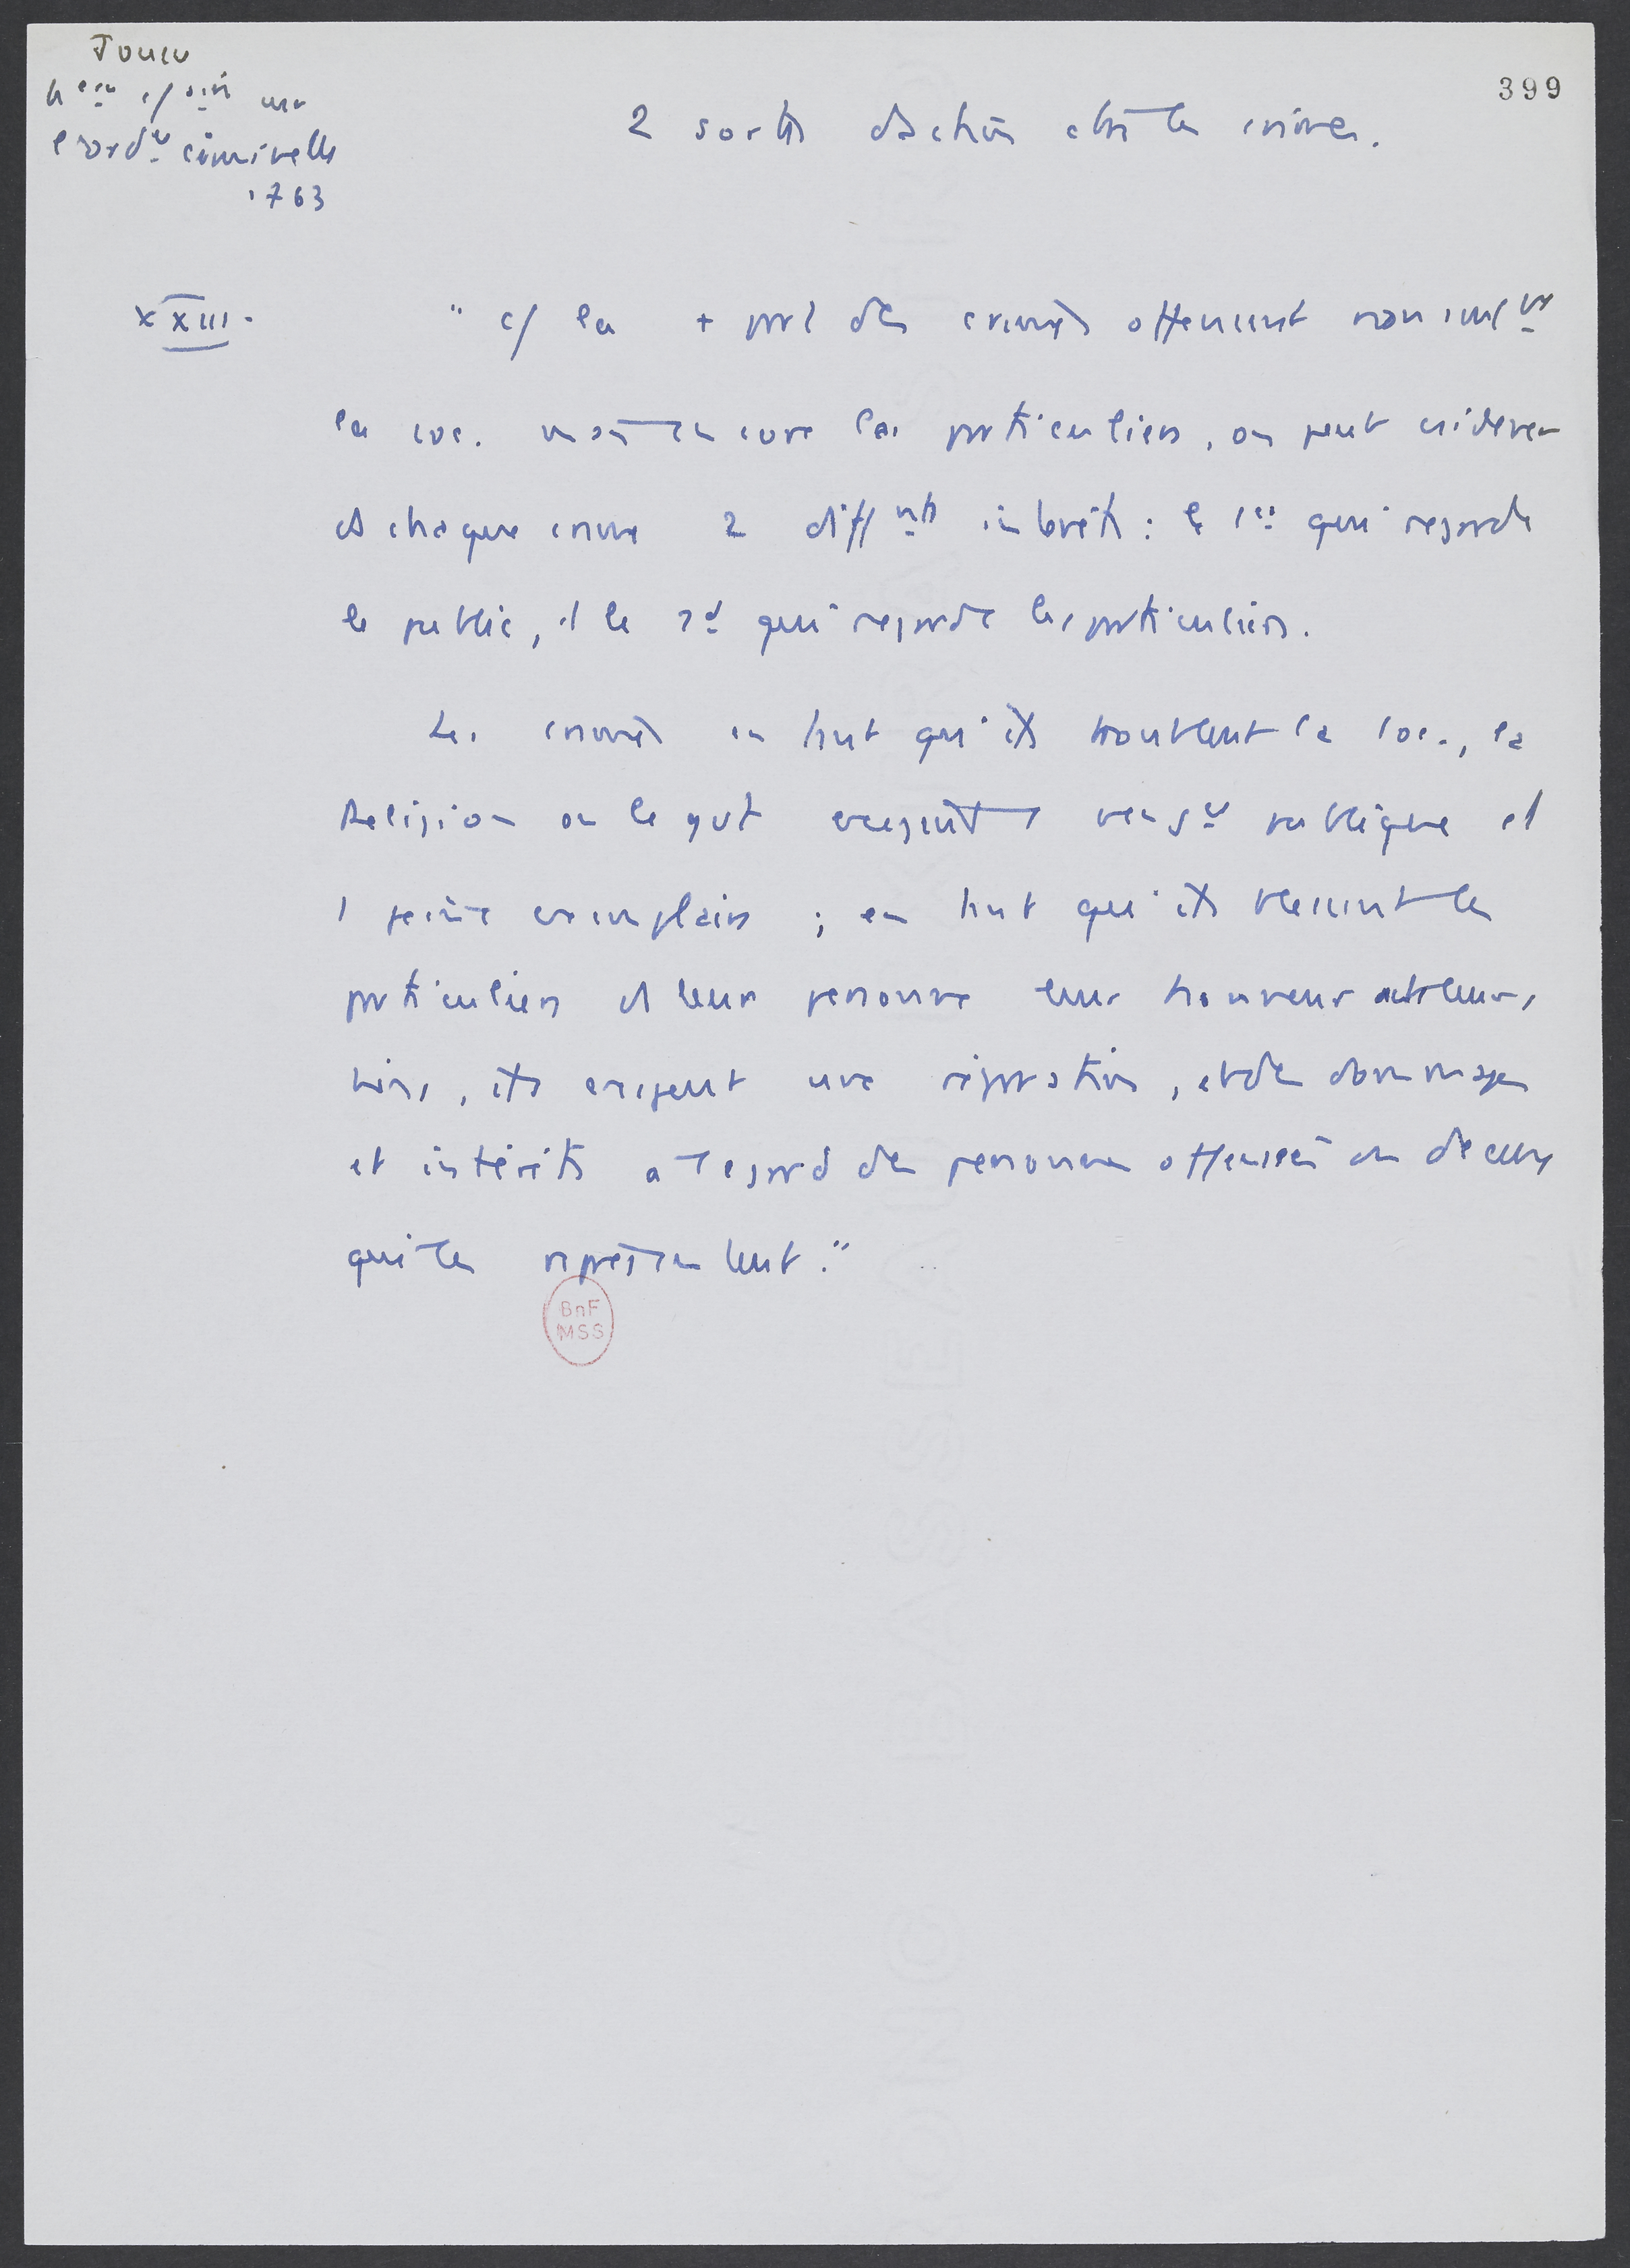 Jousse
399
2 sortes d'action contre les crimes.
1763
XXIII.
"c/ la + part des crimes offensent non seulᵗ
la soc. mais encore les particuliers, on peut csidérer
ds chaque crime 2 diffⁿᵗˢ intérêts : le 1ᵉʳ qui regarde
le public, et le 2ᵈ qui regarde les particuliers.
Les crimes en tant qu'ils troublent la soc., la
Religion ou le gvt exigent 1 vengᶜᵉ publique et
1 peine exemplaire ; en tant qu'ils blessent les
particuliers ds leur personne leur honneur ou ds leurs
biens, ils exigent une réparation, et des dommages
et intérêts à l'égard des personnes offensées ou de ceux
qui les représentent."
BnF
MSS